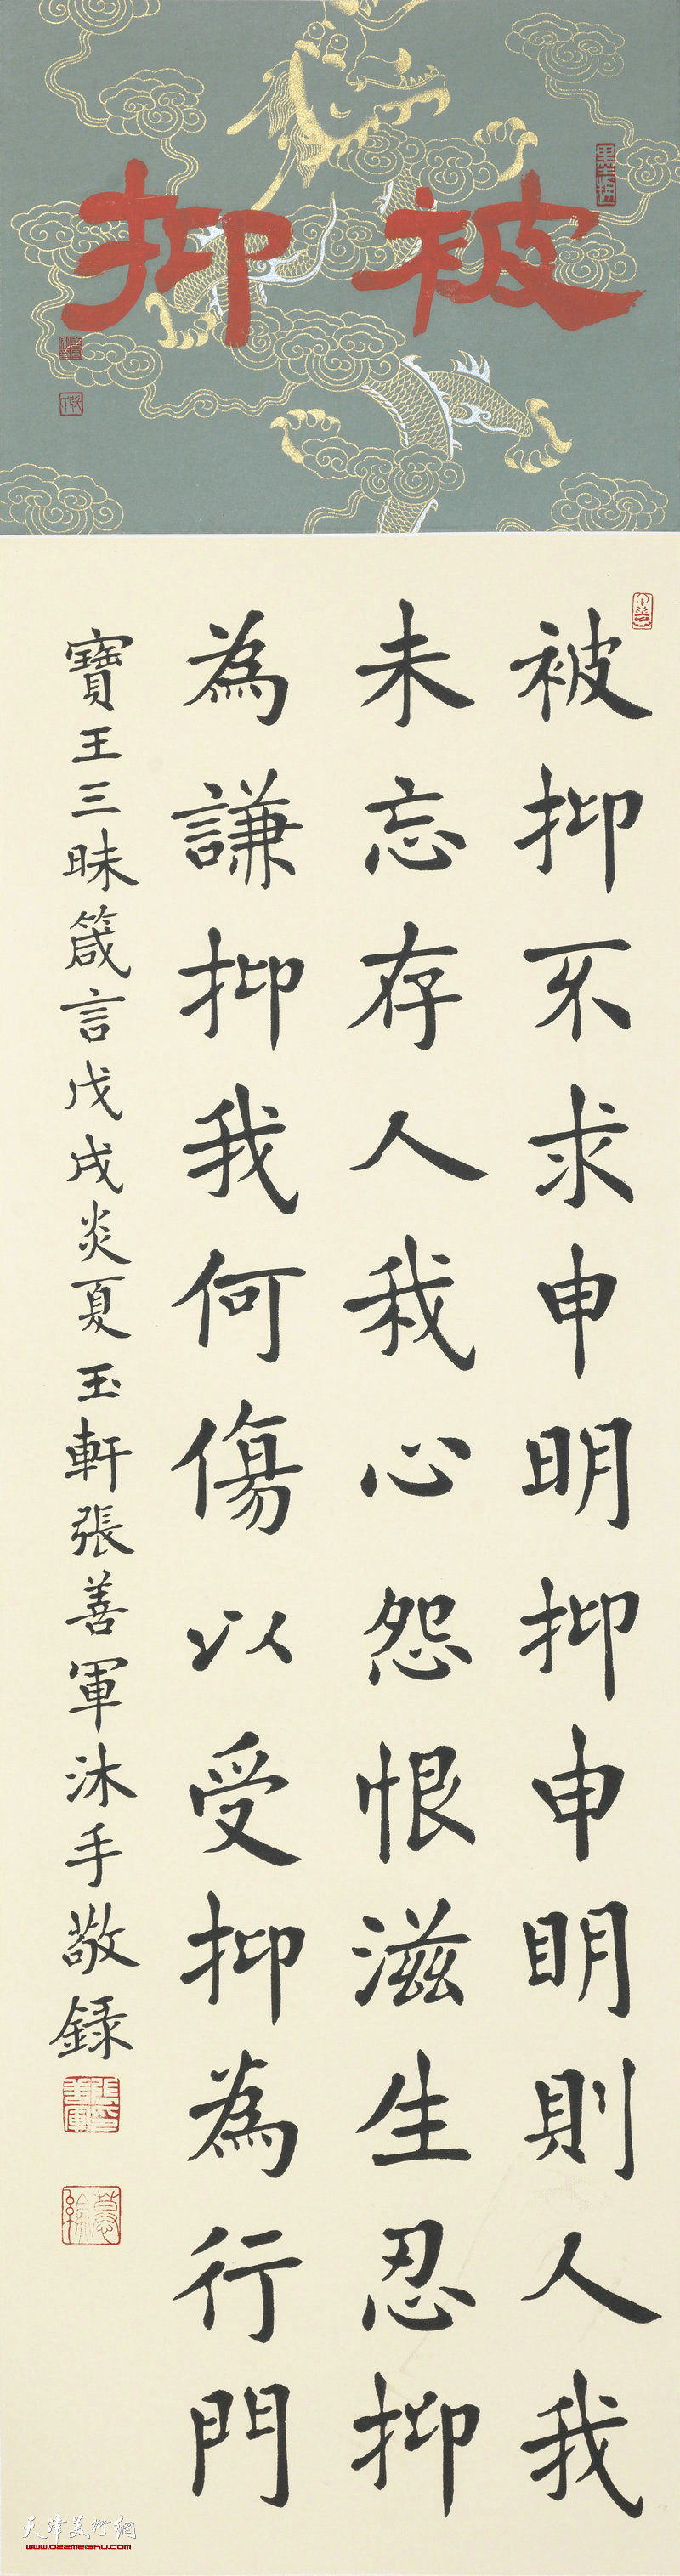 被抑
被抑不求申明抑申明則人我
未忘存人我心怨恨滋生忍抑
為謙抑我何傷以受抑為行門
寶王三昧箴言戊戌炎夏玉軒張善軍沐手敬錄
天津美術網
www.022meishu.com